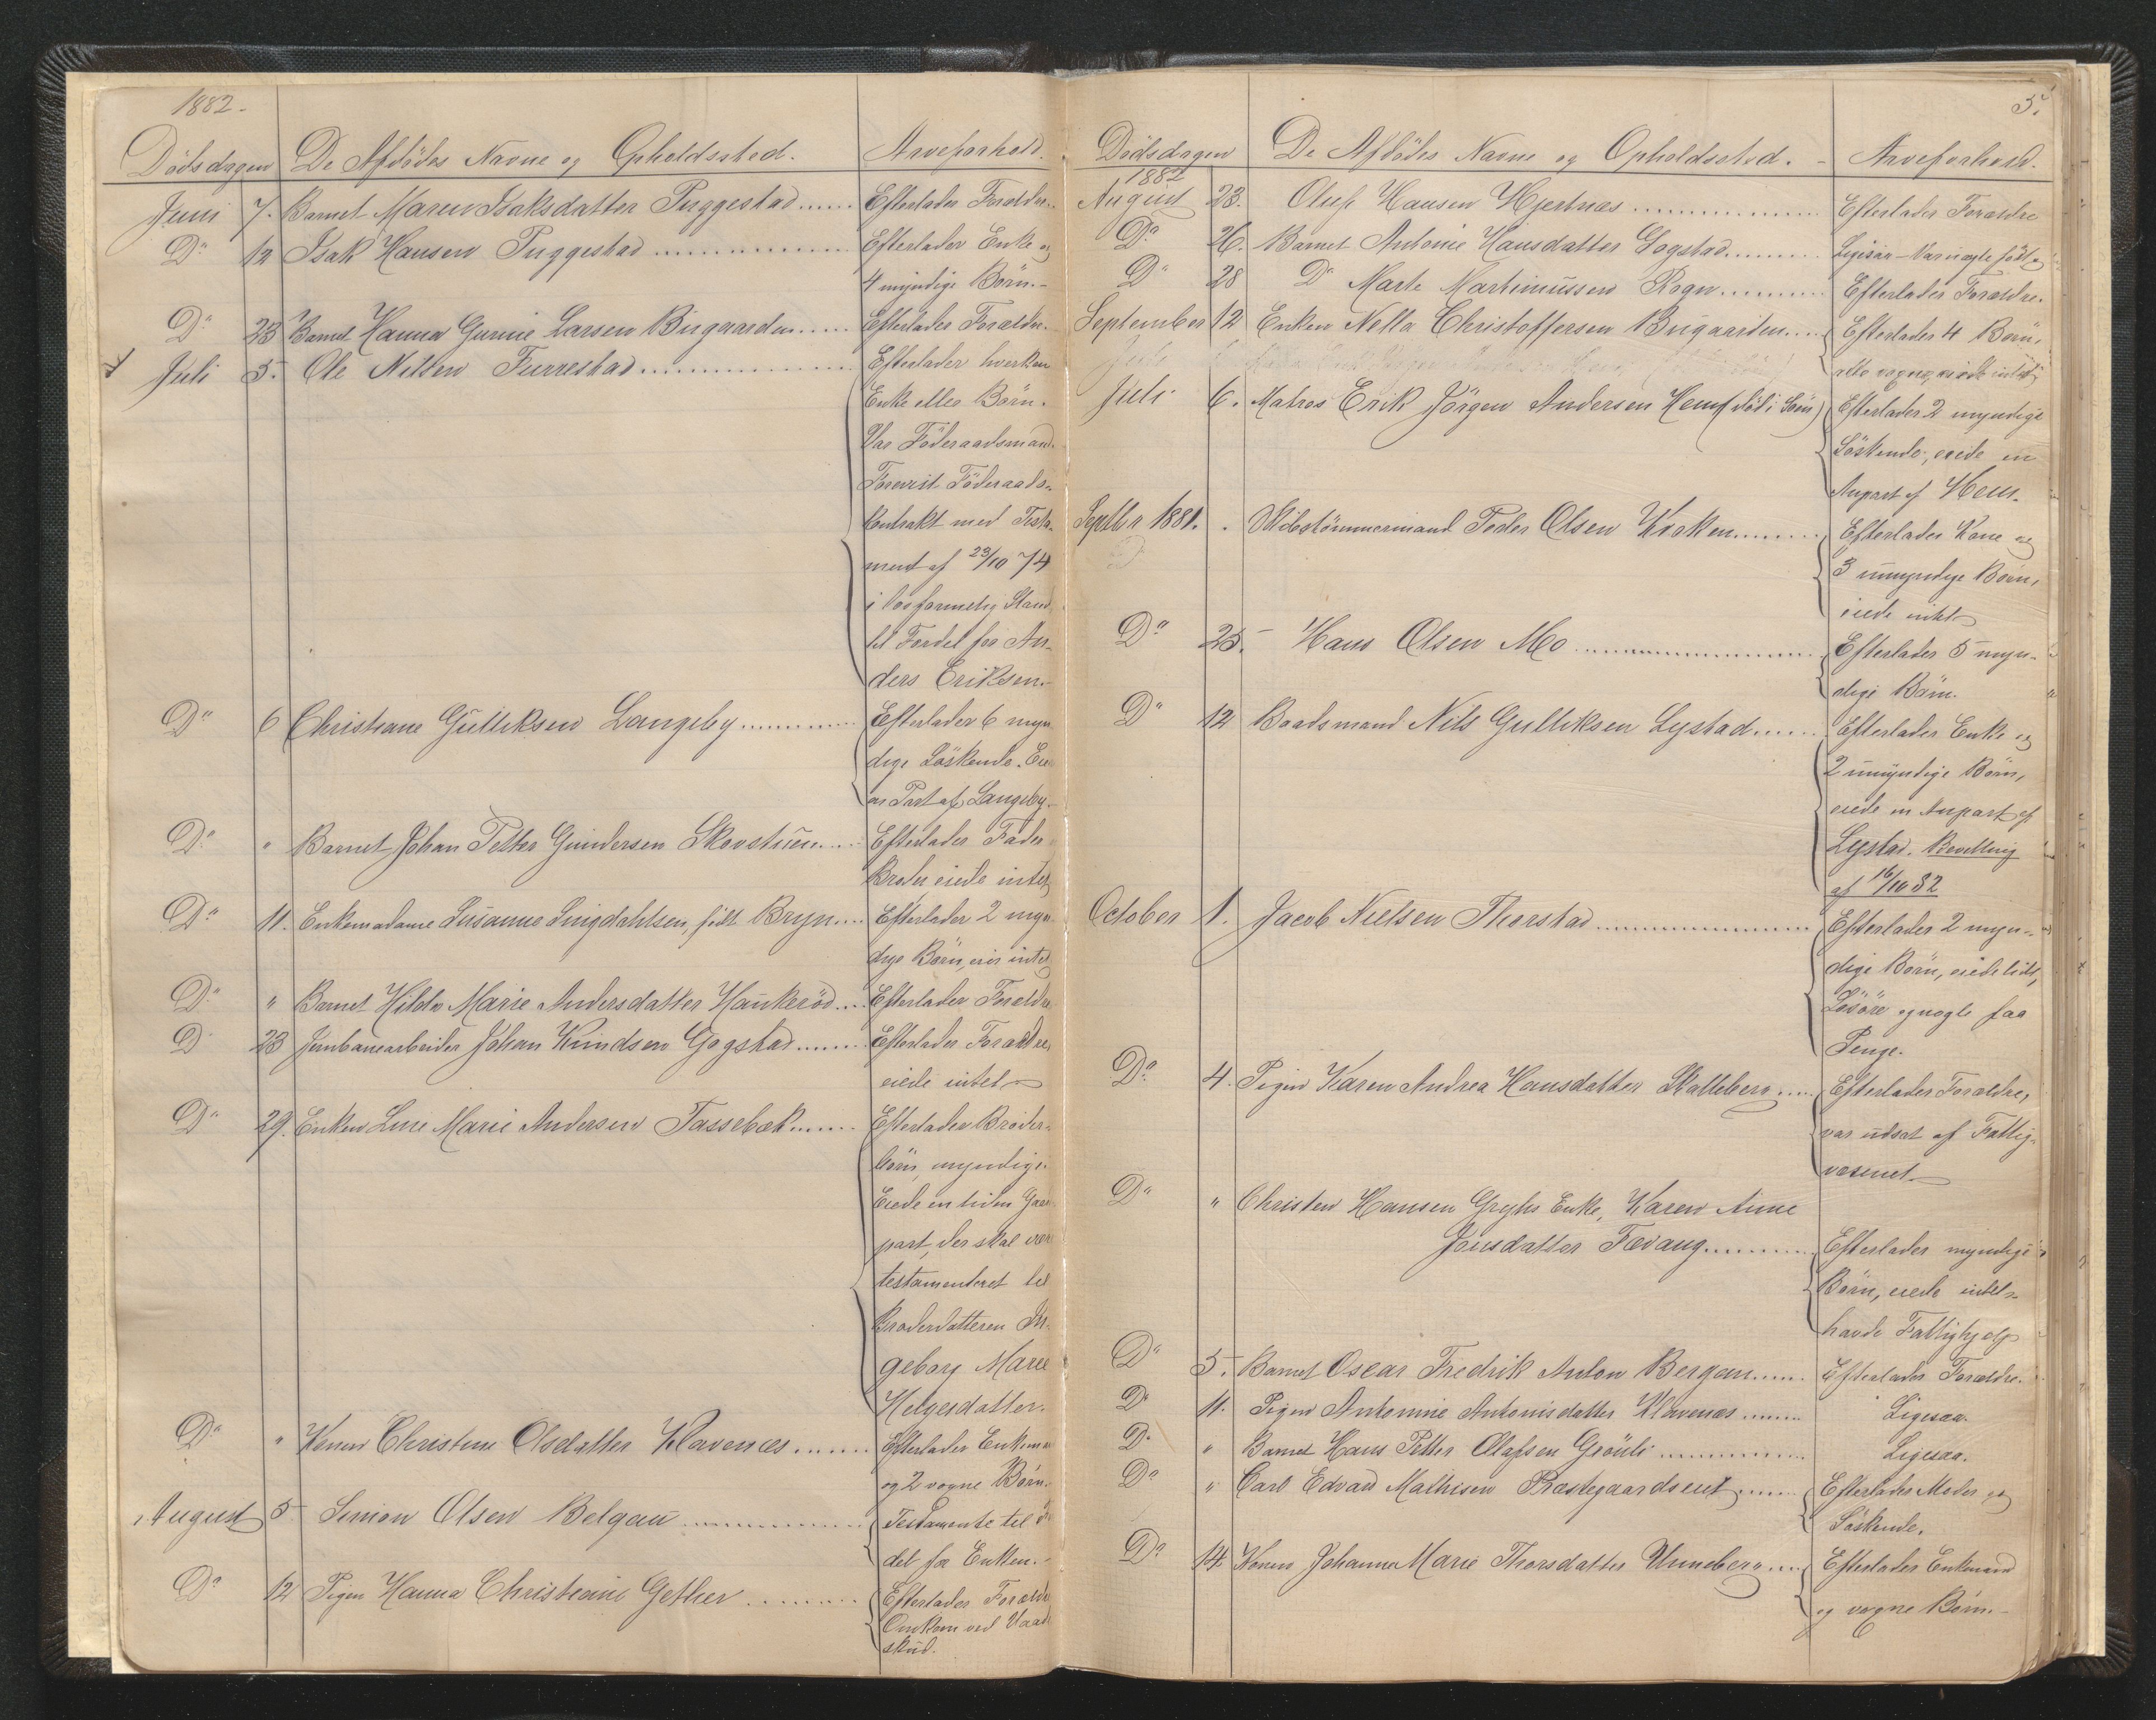 1882.
Dödsdagen De Afdödes Navne og Opholdssted. Arveforhold.
Juni 7. Barnet Maren Isaksdatter Puggestad ...... Efterlader Forældre.
Do 12 Isak Hansen Puggestad ...... Efterlader Enke og
4 myndige Börn.
Do 23 Barnet Hanna Gurine Larsen Bugaarden ...... Efterlader Forældre.
Juli 5. Ole Nilsen Furrestad ...... Efterlader hverken
Enke eller Börn.
Var Föderaadsmand.
Forevist Föderaads-
kontrakt med Testa-
ment af 23/10 74
i lovformelig Stand
til Fordel for An-
ders Eriksen.
Do 6 Christiane Gulliksen Langeby ...... Efterlader 6 myn
dige Söskende. Eier
en Part af Langeby.
Do " Barnet Johan Petter Gundersen Skovstuen .... Efterlader Fader
Broder eiede intet
Do 11. Enkemadame Susanne Lingdahlsen, født Bryn.... Efterlader 2 myn
dige Börn, eier intet
Do " Barnet Hilda Marie Andersdatter Haukeröd ... Efterlader Forældre
Do 23 Jernbanearbeider Johan Knudsen Gogstad ...... Efterlader Forældre,
eiede intet
Do 29. Enken Line Marie Andersen Tassebæk ...... Efterlader Broder-
börn, myndige.
Eiede en liden Gaar
part, der skal være
testamenteret til
Broderdatteren In-
geborg Marie
Helgesdatter.
Do " Konen Christine Olsdatter Klavenæs ...... Efterlader Enkema
og 2 voxne Börn.
August 5 Simon Olsen Bergan ...... Testamente til For
del for Enken.
Do 12 Pigen Hanna Christiane Gether ...... Efterlader Forældre
Omkom ved Vaade
skud.
5.
Dödsdagen De Afdödes Navne og Opholdssted. Arveforhold.
1882
August 23. Oluf Hansen Hjertnæs ...... Efterlader Forældre
Do 26. Barnet Antonie Hansdatter Gogstad ...... Ligesaa – Var uægte født
Do 28 Do Marte Martinussen Rogn ...... Efterlader Forældre.
September 12 Enken Nella Christoffersen Bugaarden .... Efterlader 4 Börn,
alle voxne, eiede intet
Juli 6. Matros Erik Jörgen Andersen Hem (död i Söen) Efterlader 2 myndige
Söskende, eiede en
Anpart af Hem.
Septbr 1881. Skibstömmermand Peder Olsen Virken ...... Efterlader Kone og
3 umyndige Börn,
eiede intet
Do 25. Hans Olsen Mo ...... Efterlader 5 myn-
dige Börn.
Do 12 Baadsmand Nils Gulliksen Lystad ...... Efterlader Enke og
2 umyndige Börn,
eiede en Anpart af
Lystad. Bevilling
af 16/10 82
October 1. Jacob Nielsen Thorstad ...... Efterlader 2 myn-
dige Börn, eiede lidt
Lösöre og nogle faa
Penge.
Do 4. Pigen Karen Andrea Hansdatter Skalleberg .... Efterlader Forældre,
var udsat af Fattig-
væsenet
Do " Christen Hansen Gryhs Enke, Karen Anne
Jensdatter Fevang ...... Efterlader myndige
Börn, eiede intet
havde Fattighjelp
Do 5. Barnet Oscar Fredrik Anton Bergan ..... Efterlader Forældre.
Do 11. Pigen Antonine Antonisdatter Klavenæs ...... Ligesaa.
Do " Barnet Hans Petter Olafsen Gröuli ...... Ligesaa.
Do " Carl Edvard Mathisen Præstegaardseiet ...... Efterlader Moder og
Söskende.
Do 14. Konen Johanne Marie Thorsdatter Unneberg .... Efterlader Enkemand
og voxne Börn.